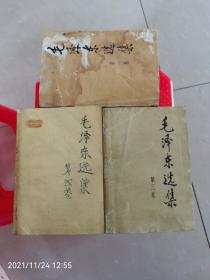 毛泽东选集
毛泽东选集
第四卷
毛泽东选集
第三卷
2021/11/24 12:55